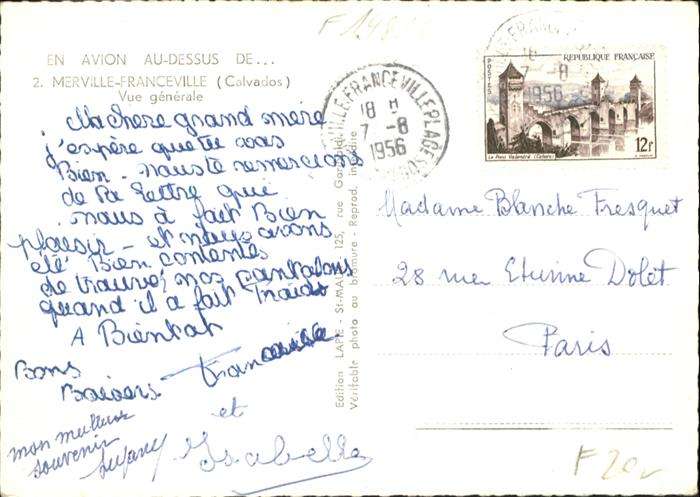 EN AVION AU-DESSUS DE...
2. MERVILLE-FRANCEVILLE (Calvados)
Vue générale
Ma chere grand mère
j'espère que tu vas
Bien - nous te remercions
de ta lettre qui
nous à fait Bien
plaisir - et nous avons
été Bien contentes
de trouvé nos pantalons
quand il a fait froid
A Bientot
Bons
Baisers
et
Isabelle
mon meilleur
souvenir
Edition LAPIE - St-MAUR 125, rue
Véritable photo au bromure - Reprod. interdite
FRANCEVILLE PLAGE
18 H
7 - 8
1956
REPUBLIQUE FRANÇAISE
POSTES
Le Pont Valentré (Cahors)
12f
18
7 - 8
1956
Madame Blanche Fresquet
28 rue Etienne Dolet
Paris
F 20